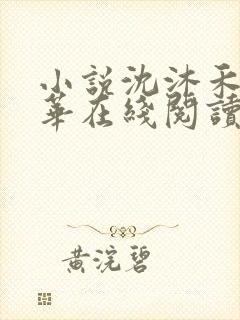 小說沈沐禾
華在綫閱讀
黃浣碧